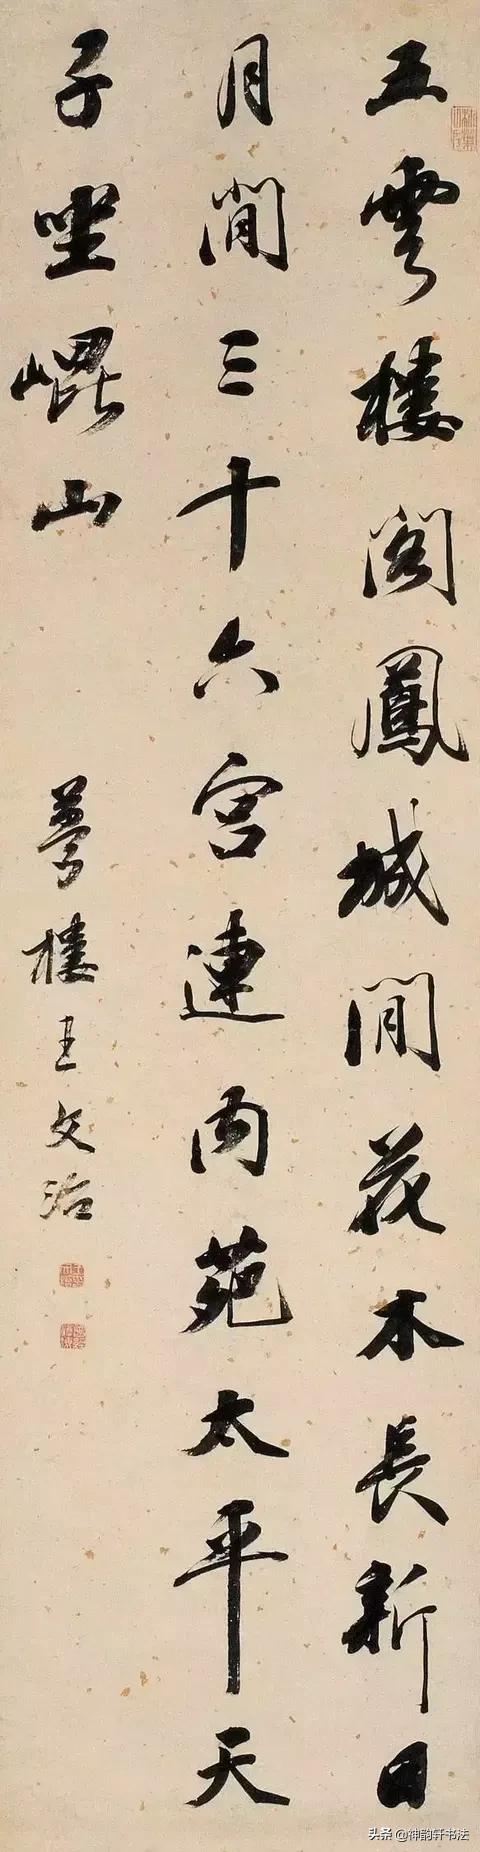 五雲樓閣鳳城間花木長新日
月閒三十六宮連内苑太平天
子坐崐山
夢樓王文治
头条@神韵轩书法